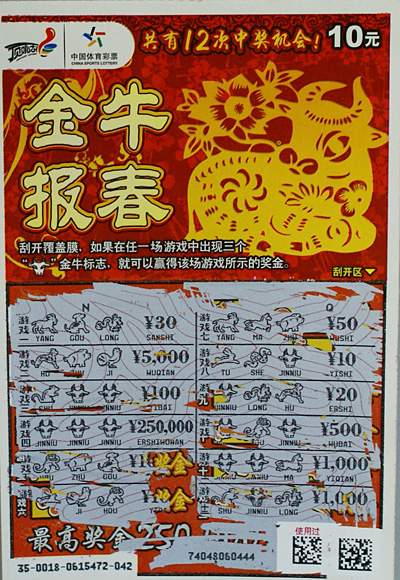 顶呱刮
中国体育彩票
CHINA SPORTS LOTTERY
共有12次中奖机会!
10元
金牛
报春
刮开覆盖膜,如果在任一场游戏中出现三个
“ ”金牛标志,就可以赢得该场游戏所示的奖金。
刮开区
N
Q
游戏一 ¥30
YANG GOU LONG SANSHI
游戏七 ¥50
YANG MA WUSHI
¥5,000
HU WUQIAN
游戏八 ¥10
TU SHE JINNIU YISHI
游戏 ¥100
JINNIU JINNIU YIBAI
游戏九 ¥20
JINNIU LONG HU ERSHI
游戏四 ¥250,000
JINNIU JINNIU JINNIU ERSHIWUWAN
游戏十 ¥500
JINNIU WUBAI
游戏 奖金
ZHU GOU
游戏十 ¥1,000
JINNIU JINNIU MA YIQIAN
游戏六 奖金
JI HOU
游戏十二 ¥1,000
SHU JINNIU LONG
最高奖金250
使用过
74048060444
35-0018-0615472-042